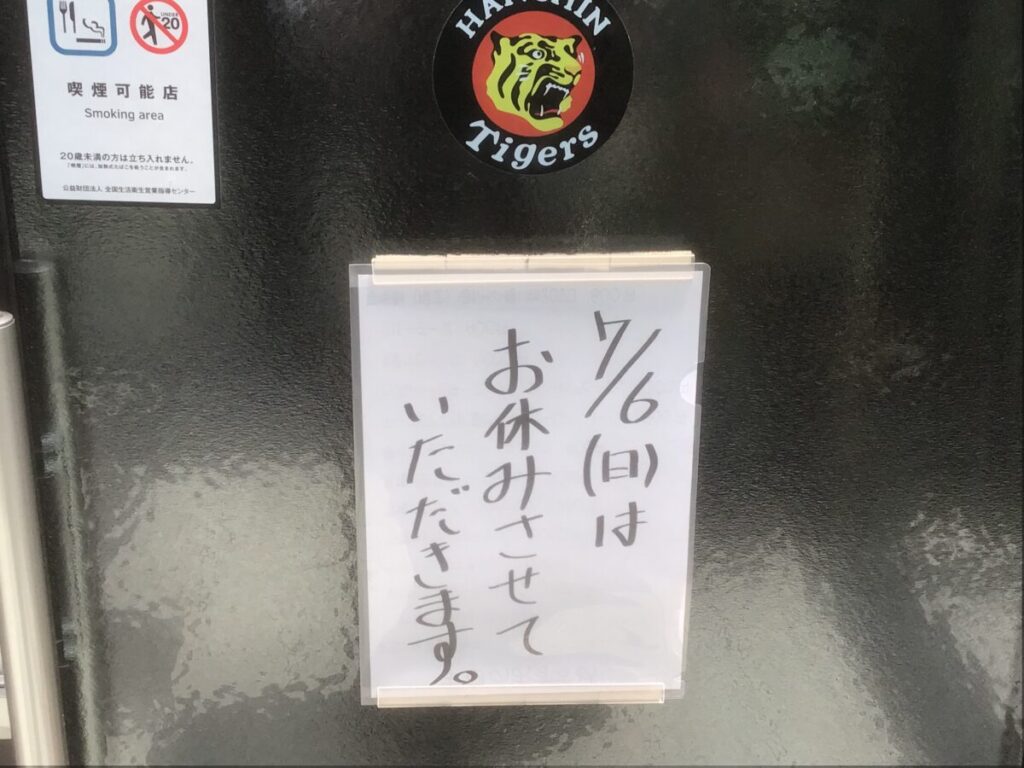 UNDER
20
喫煙可能店
Smoking area
20歳未満の方は立ち入れません。
「喫煙」には、加熱式たばこを吸うことが含まれます。
公益財団法人 全国生活衛生営業指導センター
HANSHIN
Tigers
7/6(日)は
お休みさせて
いただきます。